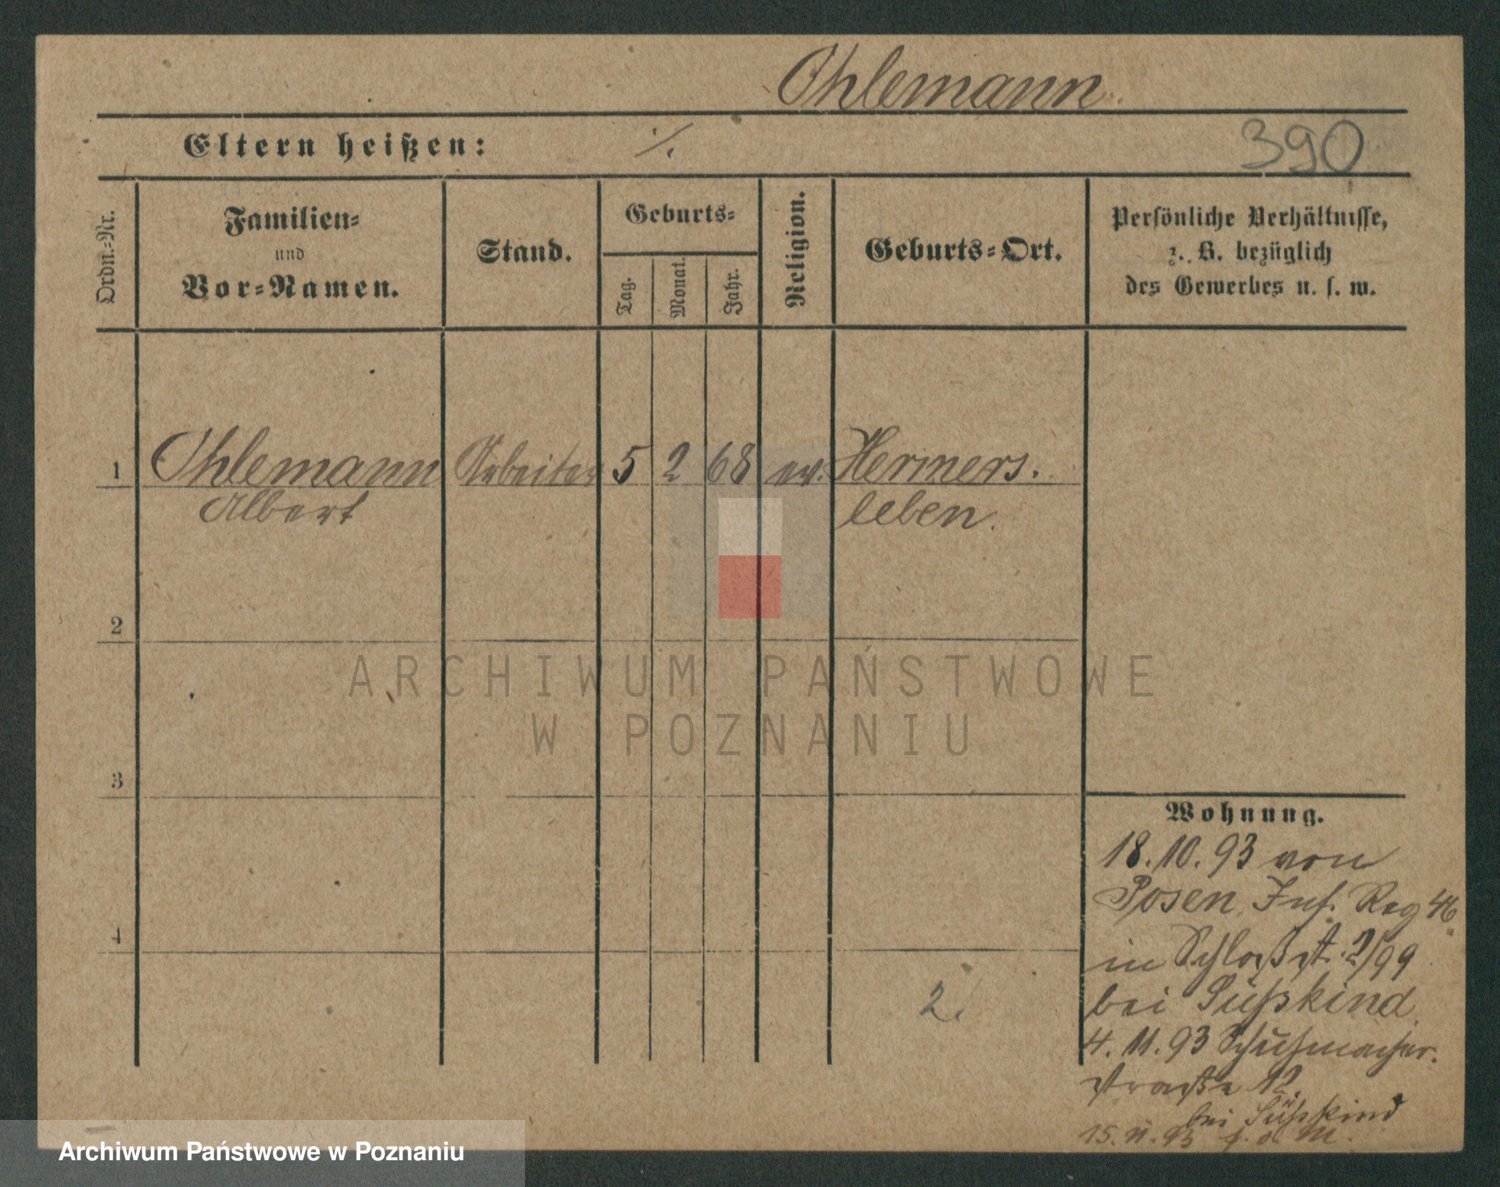 Ohlemann
Eltern heißen: ./.
390
Ordn.-Nr.
Familien-
und
Vor-Namen.
Stand.
Geburts-
Tag.
Monat.
Jahr.
Religion.
Geburts-Ort.
Persönliche Verhältnisse,
z. B. bezüglich
des Gewerbes u. s. w.
1 Ohlemann Arbeiter 5 2 68 ev. Hermers.
Albert leben.
2
ARCHIWUM PAŃSTWOWE
W POZNANIU
3
Wohnung.
18.10.93 von
Posen, Inf. Reg 46
4
in Schloßst. 2/99
2.
bei Süßkind
4.11.93 Schuhmacher-
straße 12
bei Süßkind
15. 11. 93
Archiwum Państwowe w Poznaniu